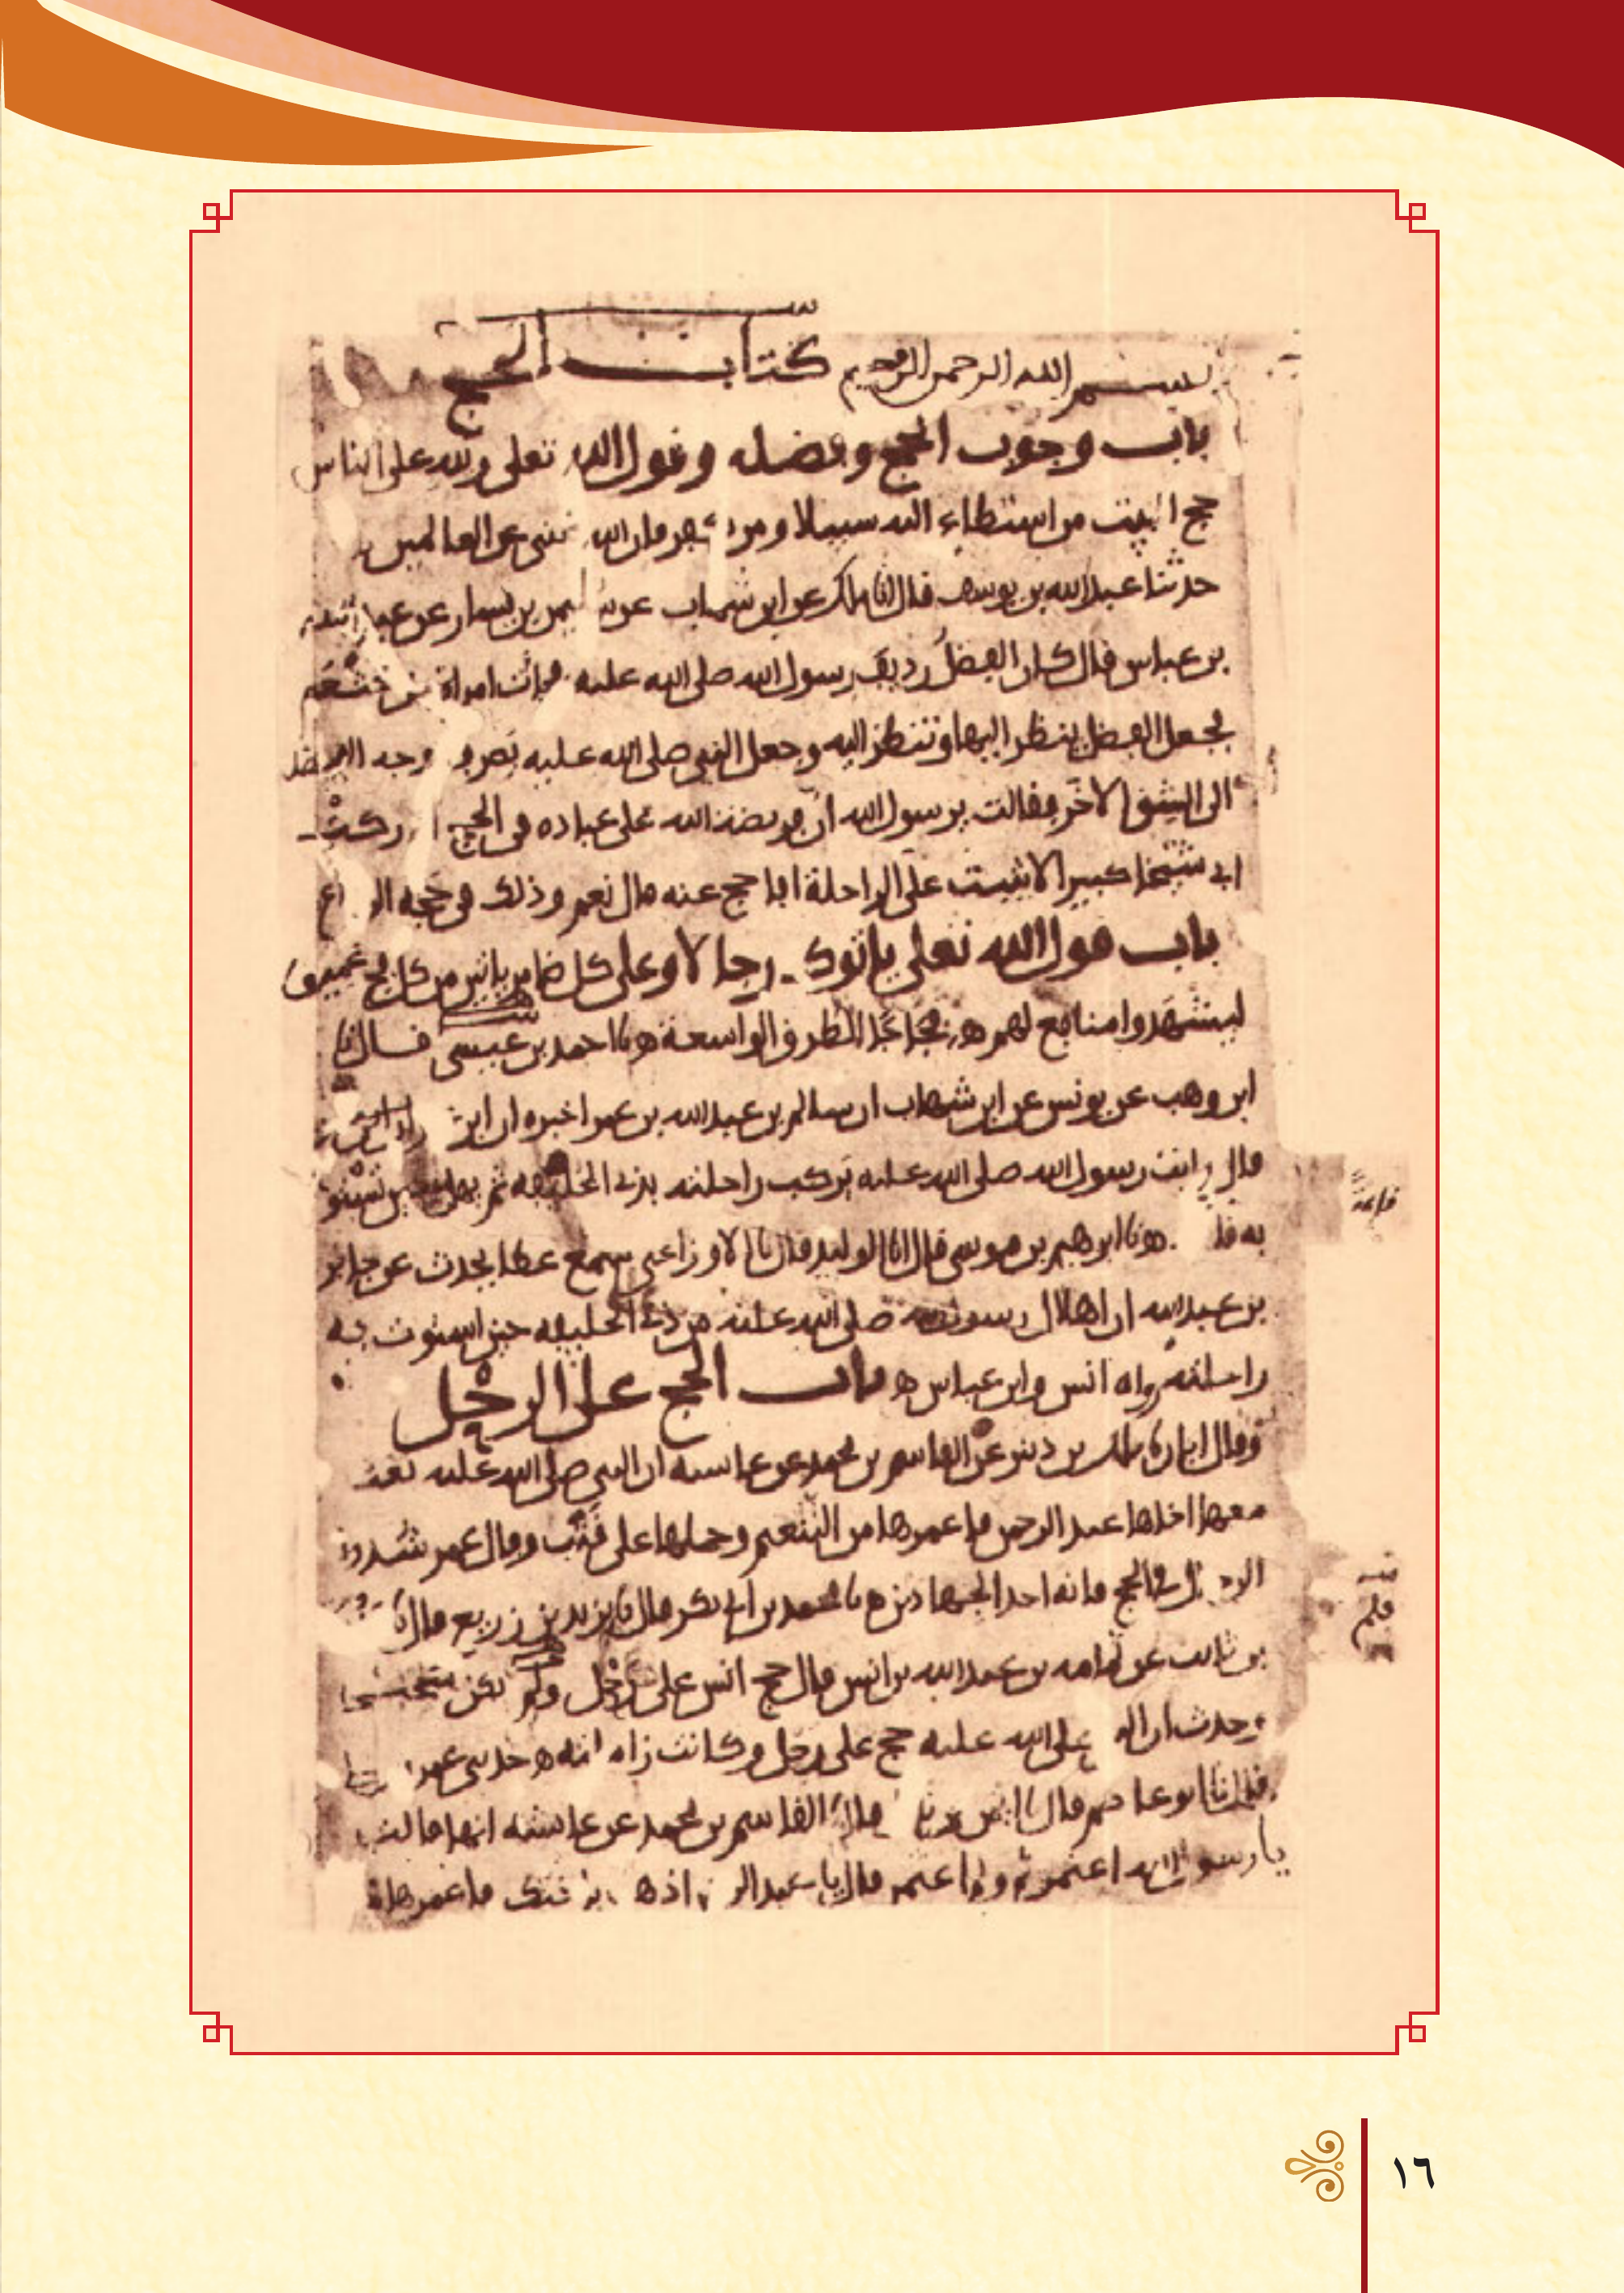 بسم الله الرحمن الرحيم كتاب الحج
باب وجوب الحج وفضله وقول الله تعلى ولله على الناس
حج البيت من استطاع اليه سبيلا ومن كفر فان الله غني عن العالمين
حدثنا عبد الله بن يوسف قال انا ملك عن ابن شهاب عن سليمن بن يسار عن عبد الله
بن عباس قال كان الفضل رديف رسول الله صلى الله عليه فجات امراة من خثعم
فجعل الفضل ينظر اليها وتنظر اليه وجعل النبي صلى الله عليه يصرف وجه الفضل
الى الشق الاخر فقالت يرسول الله ان فريضة الله على عباده في الحج ادركت
ابي شيخا كبيرا لا يثبت على الراحلة افاحج عنه قال نعم وذلك في حجة الوداع
باب قول الله تعلى ياتوك رجالا وعلى كل ضامر ياتين من كل فج عميق
ليشهدوا منافع لهم فجاجا الطرق الواسعة نا احمد بن عيسى قال نا
ابن وهب عن يونس عن ابن شهاب ان سالم بن عبد الله بن عمر اخبره ان ابن
قال رايت رسول الله صلى الله عليه يركب راحلته بذي الحليفة ثم يهل حين تستوي
به نا ابرهيم بن موسى قال انا الوليد قال نا الاوزاعي سمع عطا يحدث عن جابر
بن عبد الله ان اهلال رسول الله صلى الله عليه من ذي الحليفة حين استوت به
راحلته رواه انس وابن عباس باب الحج على الرحل
وقال ابان نا ملك بن دينر عن القاسم بن محمد عن عايشة ان النبي صلى الله عليه بعث
معها اخاها عبد الرحمن فاعمرها من التنعيم وحملها على قتب وقال عمر شدوا
الرحال في الحج فانه احد الجهادين نا محمد بن ابي بكر قال نا يزيد بن زريع قال نا
بن ثابت عن ثمامة بن عبد الله بن انس قال حج انس على رحل ولم يكن شحيحا
وحدث ان النبي صلى الله عليه حج على رحل وكانت زاملته حدثني عمرو
قال نا ابو عاصم قال نا ايمن بن نابل قال نا القاسم بن محمد عن عايشة انها قالت
يا رسول الله اعتمرتم ولم اعتمر قال يا عبد الرحمن اذهب باختك فاعمرها
١٦